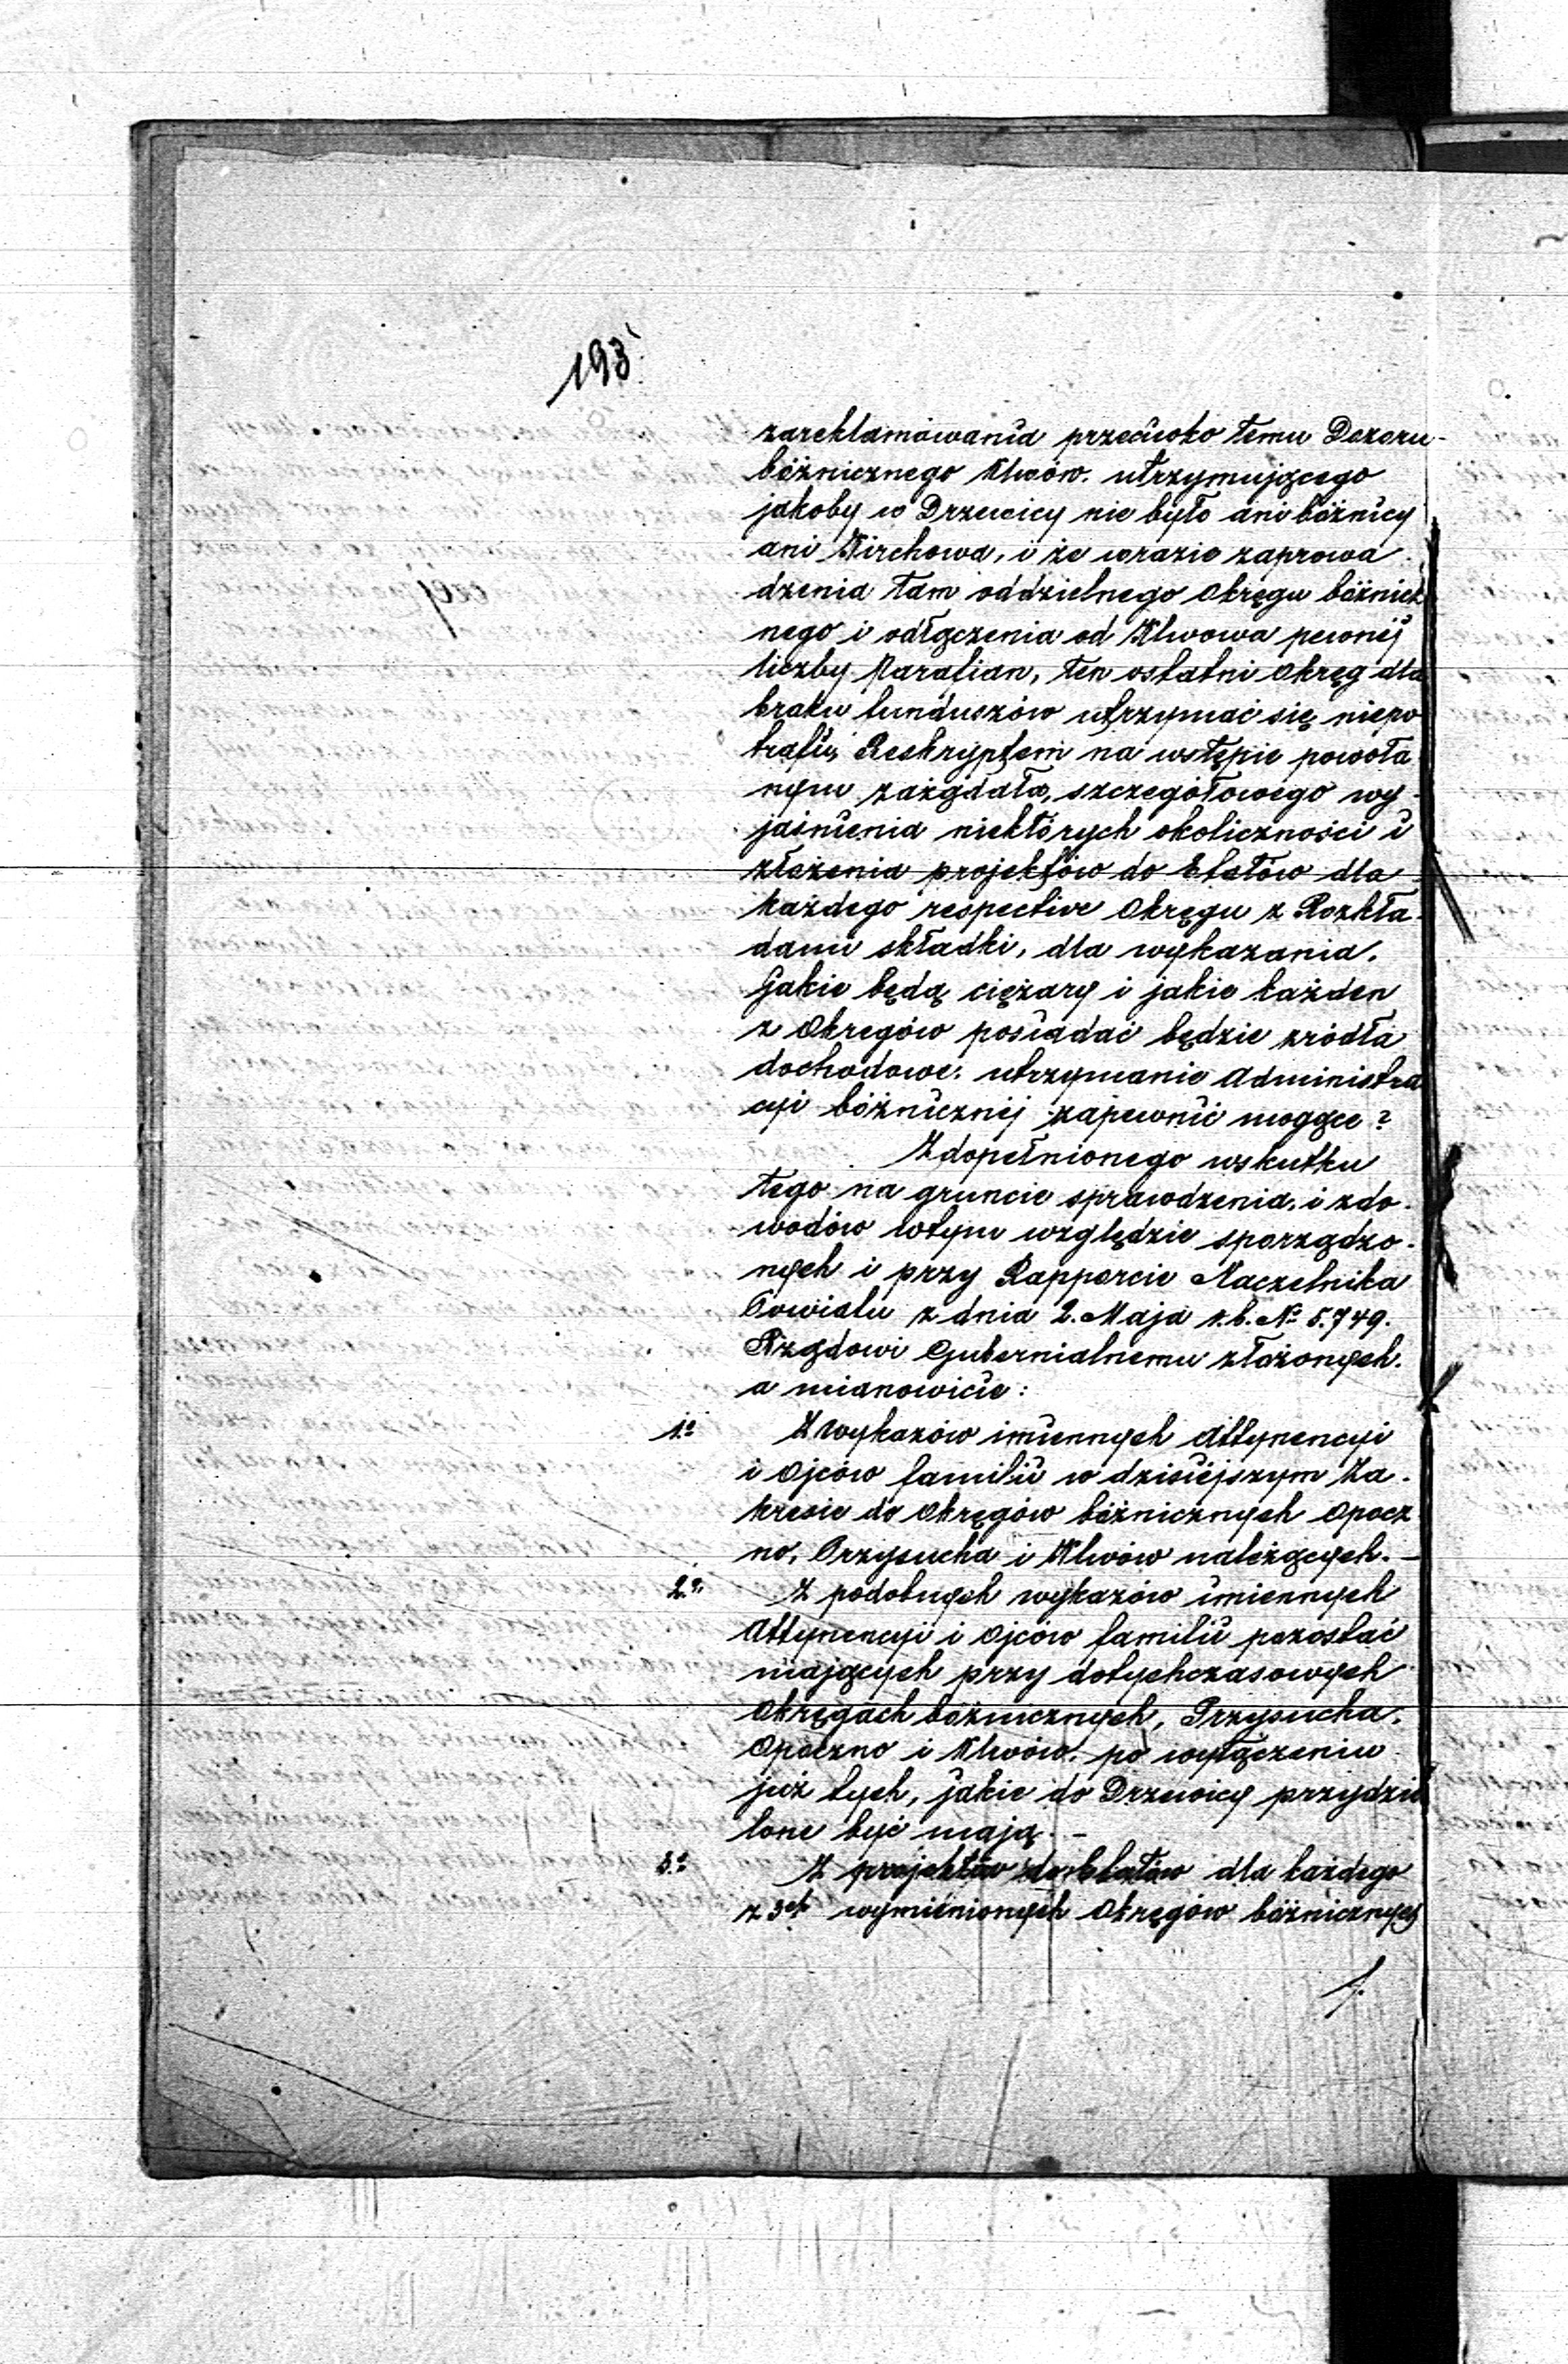 193
zareklamowania przeciwko temu Dozoru
bóżnicznego Klwów. utrzymującego
jakoby w Drzewicy nie było ani bóżnicy
ani Kirchowa, i że wrazie zaprowa
dzenia tam oddzielnego Okręgu bóżnicz
nego i odłączenia od Klwowa pewnéj
liczby Parafian, ten ostatni Okręg dla
braku funduszów utrzymać się niepo
trafi, Reskryptem na wstępie powoła
nym zażądała, szczegółowego wy-
jaśnienia niektórych okoliczności i
złożenia projektów do Etatów dla
każdego respective Okręgu z Rozkła-
dami składki, dla wykazania.
Jakie będą ciężary i jakie każden
z Okregów posiadać będzie zródła
dochodowe. utrzymanie Administra
cyi bóżnicznéj zapewnić mogące?
Zdopełnionego wskutku
tego na gruncie sprawdzenia, i zdo-
wodów wtym względzie sporządzo-
nych i przy Rapporcie Naczelnika
Powiatu z dnia 2. Maja r. b. No 5.749.
Rządowi Gubernialnemu złożonych.
a mianowicie:
1o Z wykazów imiennych Attynencyi
i Ojców familii w dzisiéjszym Za-
kresie do Okręgów bóżnicznych Opocz
no, Przysucha i Klwów należących. —
2o Z podobnych wykazów imiennych
Attynencyi i Ojców familii pozostać
mających przy dotychczasowych
Okręgach bóżnicznych, Przysucha,
Opoczno i Klwów. po wyłączeniu
już tych, jakie do Drzewicy przydzie
lone być mają. —
3o Z projektów do Etatów dla każdego
z 3ch wymienionych Okręgów bóżnicznych